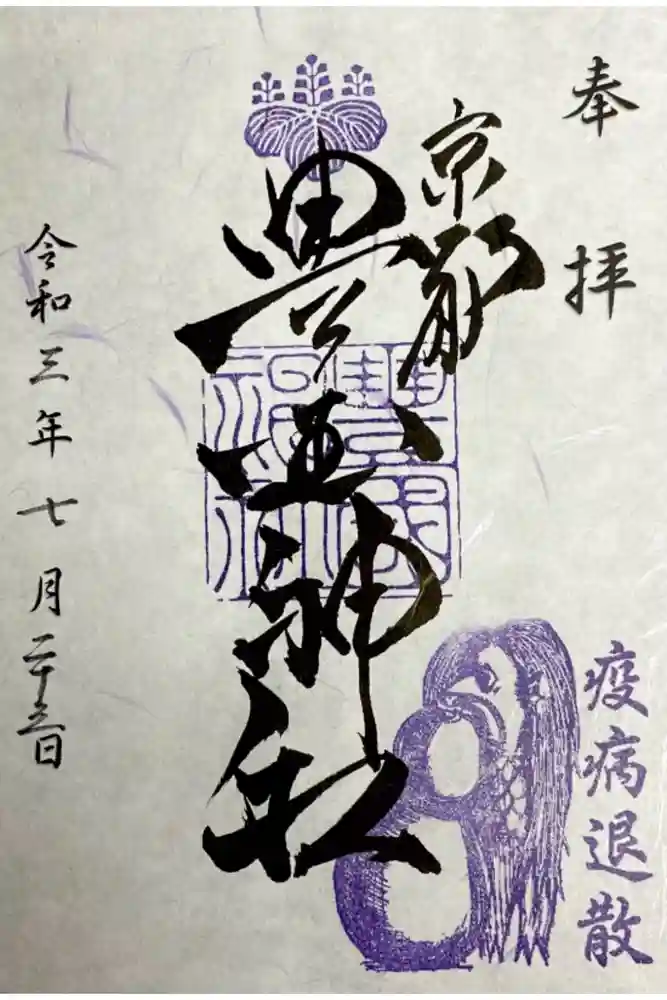 奉拝
京都
豊国神社
豊國神社
疫病退散
令和三年七月二十三日